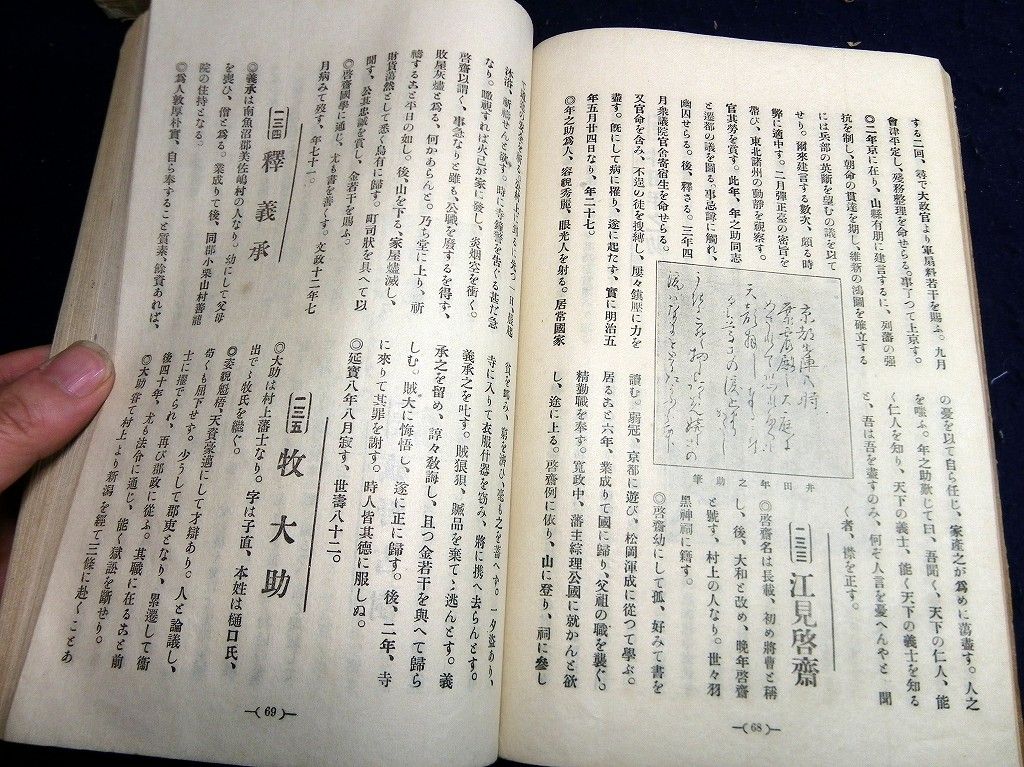 する二回、尋で大政官より軍扇料若干を賜ふ。九月
會津平定し、殘務整理を命せらる。事了つて上京す。
◎二年京に在り、山縣有朋に建言するに、列藩の强
抗を制し、朝命の貫達を期し、維新の鴻圖を確立する
には兵部の英斷を望むの議を以て
せり。爾來建言する數次、頗る時
弊に適中す。二月彈正臺の密旨を
帶び、東北諸州の動靜を視察す。
官其勞を賞す。此年、年之助同志
と遷都の議を圖る。事忌諱に觸れ、
幽囚せらる。後、釋さる。三年四
月衆議院官舍寄宿生を命せらる。
又官命を含み、不逞の徒を搜縛し、屢々鎭壓に力を
盡す。旣にして病に罹り、遂に起たず、實に明治五
年五月廿四日なり、年二十七。
◎年之助爲人、容貌秀麗、眼光人を射る。居常國家
井田年之助筆
の憂を以て自ら任じ、家產之が爲めに蕩盡す。人之
を嗤ふ。年之助歎じて曰、吾聞く、天下の仁人、能
く仁人を知り、天下の義士、能く天下の義士を知る
と、吾は吾を盡すのみ、何ぞ人言を憂へんやと 聞
く者、襟を正す。
〔一三三〕 江見啓齋
◎啓齋名は長載、初め將曹と稱
し、後、大和と改め、晩年啓齋
と號す、村上の人なり。世々羽
黑神祠に籍す。
◎啓齋幼にして孤、好みて書を
讀む。弱冠、京都に遊び、松岡渾成に從つて學ぶ。
居るゐと六年、業成りて國に歸り、父祖の職を襲ぐ。
精勤職を奉す。寬政中、藩主綜理公國に就かんと欲
し、途に上る。啓齋例に依り、山に登り、祠に叄し
―(68)―
沐浴、祈禱せんと欲す。時に寺鐘警を告ぐる甚だ急
なり。瞰視すれば火己が家に發し、炎烟空を衝く。
啓齋以謂く、事急なりと雖も、公職を廢するを得す、
敗屋灰燼と爲る、何かあらんと。乃ち堂に上り、祈
禱するゐと平日の如し。後、山を下る、家屋燼滅し、
財貨蕩然として悉く烏有に歸す。町司狀を具へて以
聞す、公其忠誠を賞し、金若干を賜ふ。
◎啓齋國學に通じ、尤も書を善くす。文政十二年七
月病みて歿す、年七十一。
〔一三四〕 釋義承
◎義承は南魚沼郡美佐嶋村の人なり。幼にして父母
を喪ひ、僧と爲る。業成りて後、同郡小栗山村善龍
院の住持となる。
◎爲人敦厚朴實、自ら奉すること質素、餘資あれば、
寺に入りて衣服什器を窃み、將に携へ去らんとす。
義承之を叱す。賊狼狽、贓品を棄てゝ逃んとす。義
承之を留め、諄々敎誨し、且つ金若干を與へて歸ら
しむ。賊大に悔悟し、遂に正に歸す。後、二年、寺
に來りて其罪を謝す。時人皆其德に服しぬ。
◎延寳八年八月寂す、世壽八十二。
〔一三五〕 牧大助
◎大助は村上藩士なり。字は子直、本姓は樋口氏、
出でゝ牧氏を繼ぐ。
◎姿貌魁梧、天資豪邁にして才辯あり。人と論議し、
帶くも屈下せす。少うして郡吏となり、累遷して衞
士に擢でらる、再び郡政に從ふ。其職に在るゐと前
後四十年、尤も法令に通じ、能く獄訟を斷せり。
◎大助甞て村上より新潟を經て三條に赴くことあ
―(69)―